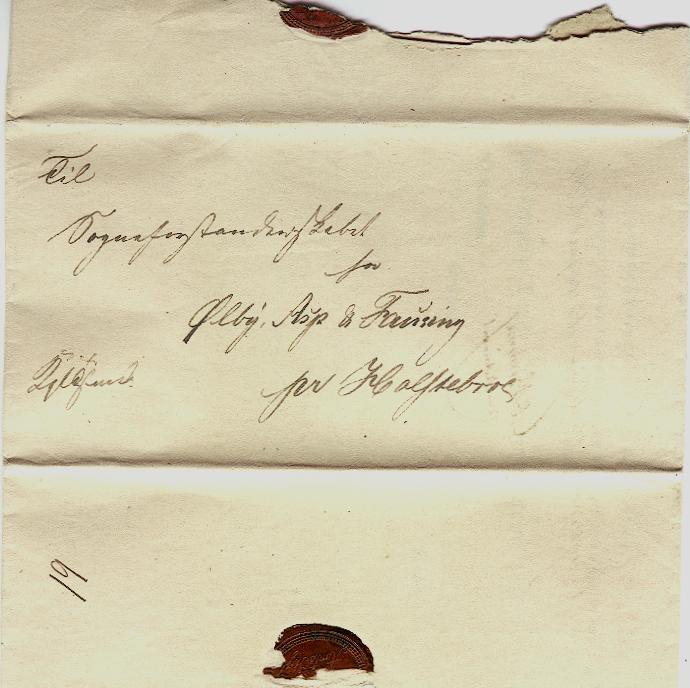 Til
Sogneforstanderskabet
for
Ølby, Asp & Fausing
pr Holstebroe
19